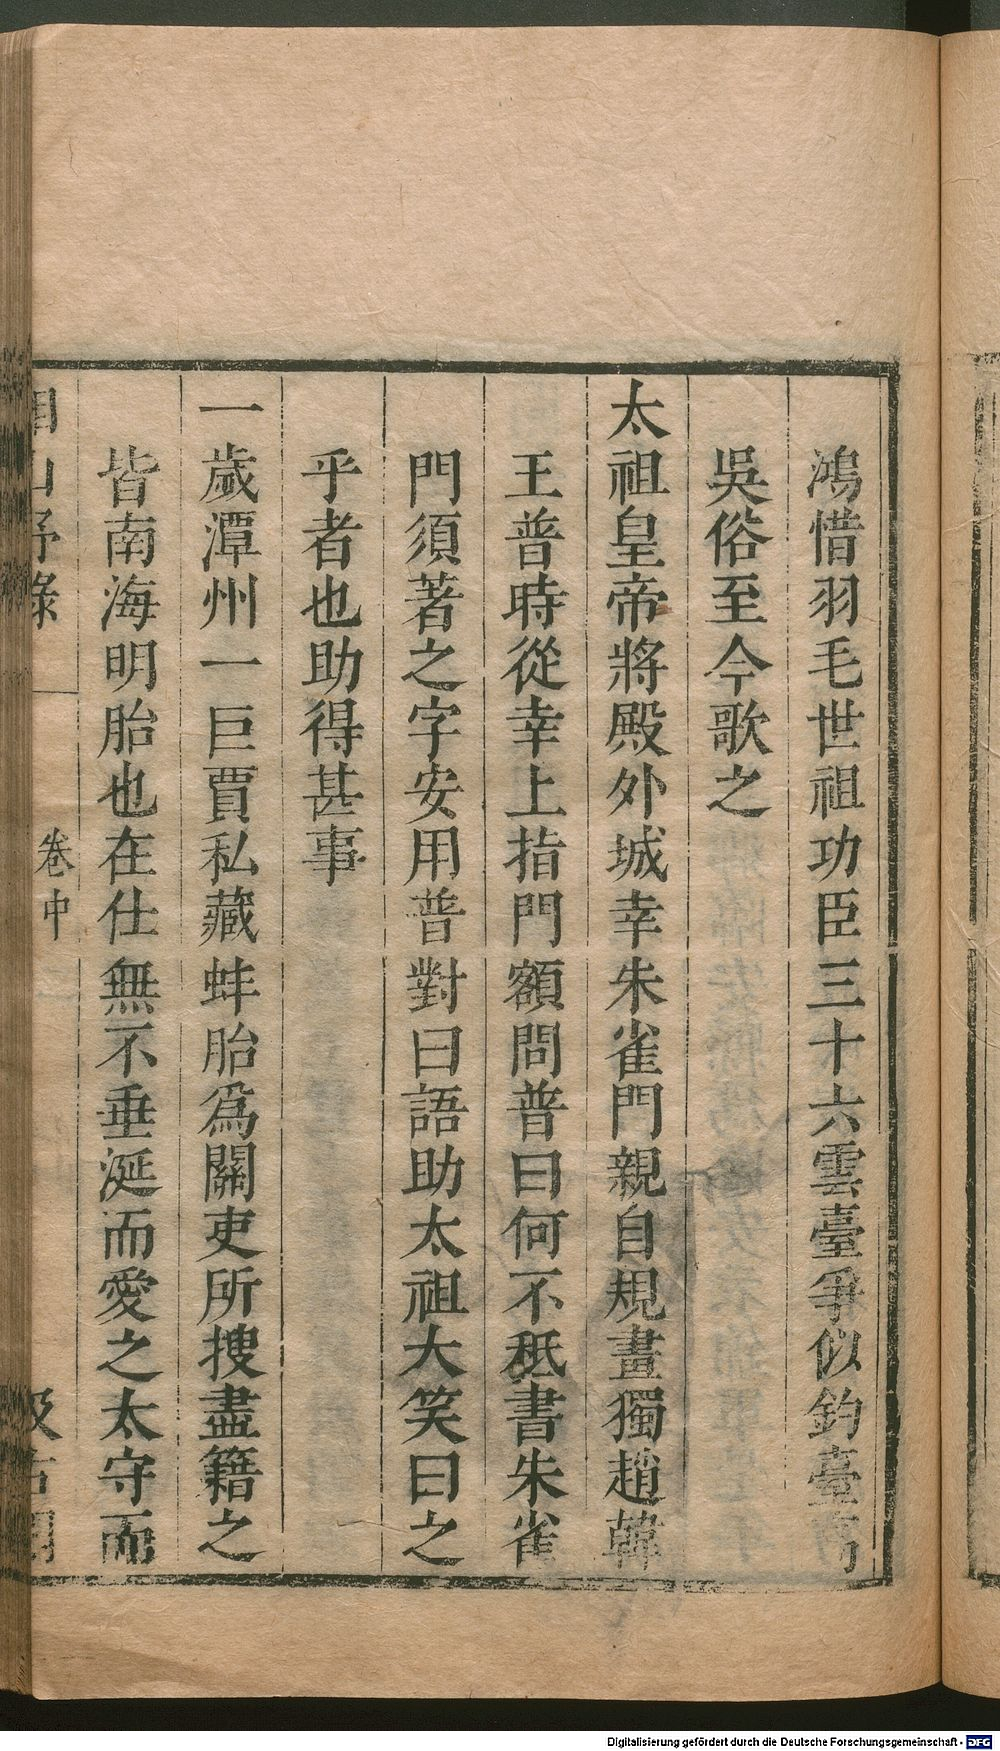 鴻惜羽毛世祖功臣三十六雲臺爭似釣臺高
吳俗至今歌之
太祖皇帝將殿外城幸朱雀門親自規畫獨趙韓
王普時從幸上指門額問普曰何不秪書朱雀
門須著之字安用普對曰語助太祖大笑曰之
乎者也助得甚事
一歲潭州一巨賈私藏蚌胎爲關吏所搜盡籍之
皆南海明胎也在仕無不垂涎而愛之太守而
山野錄
卷中
Digitalisierung gefördert durch die Deutsche Forschungsgemeinschaft - DFG